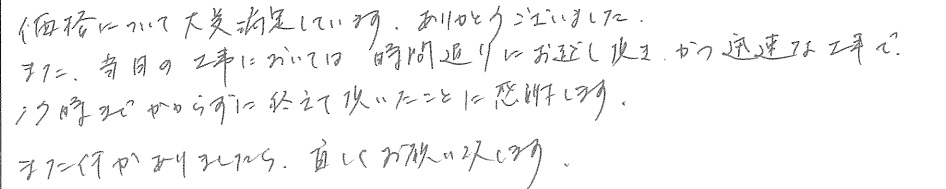 価格について大変満足しています。ありがとうございました。
また、当日の工事においては時間通りにお越し頂き、かつ迅速な工事で、
夕時までかからずに終えて頂いたことに感謝します。
また何かありましたら、宜しくお願い致します。